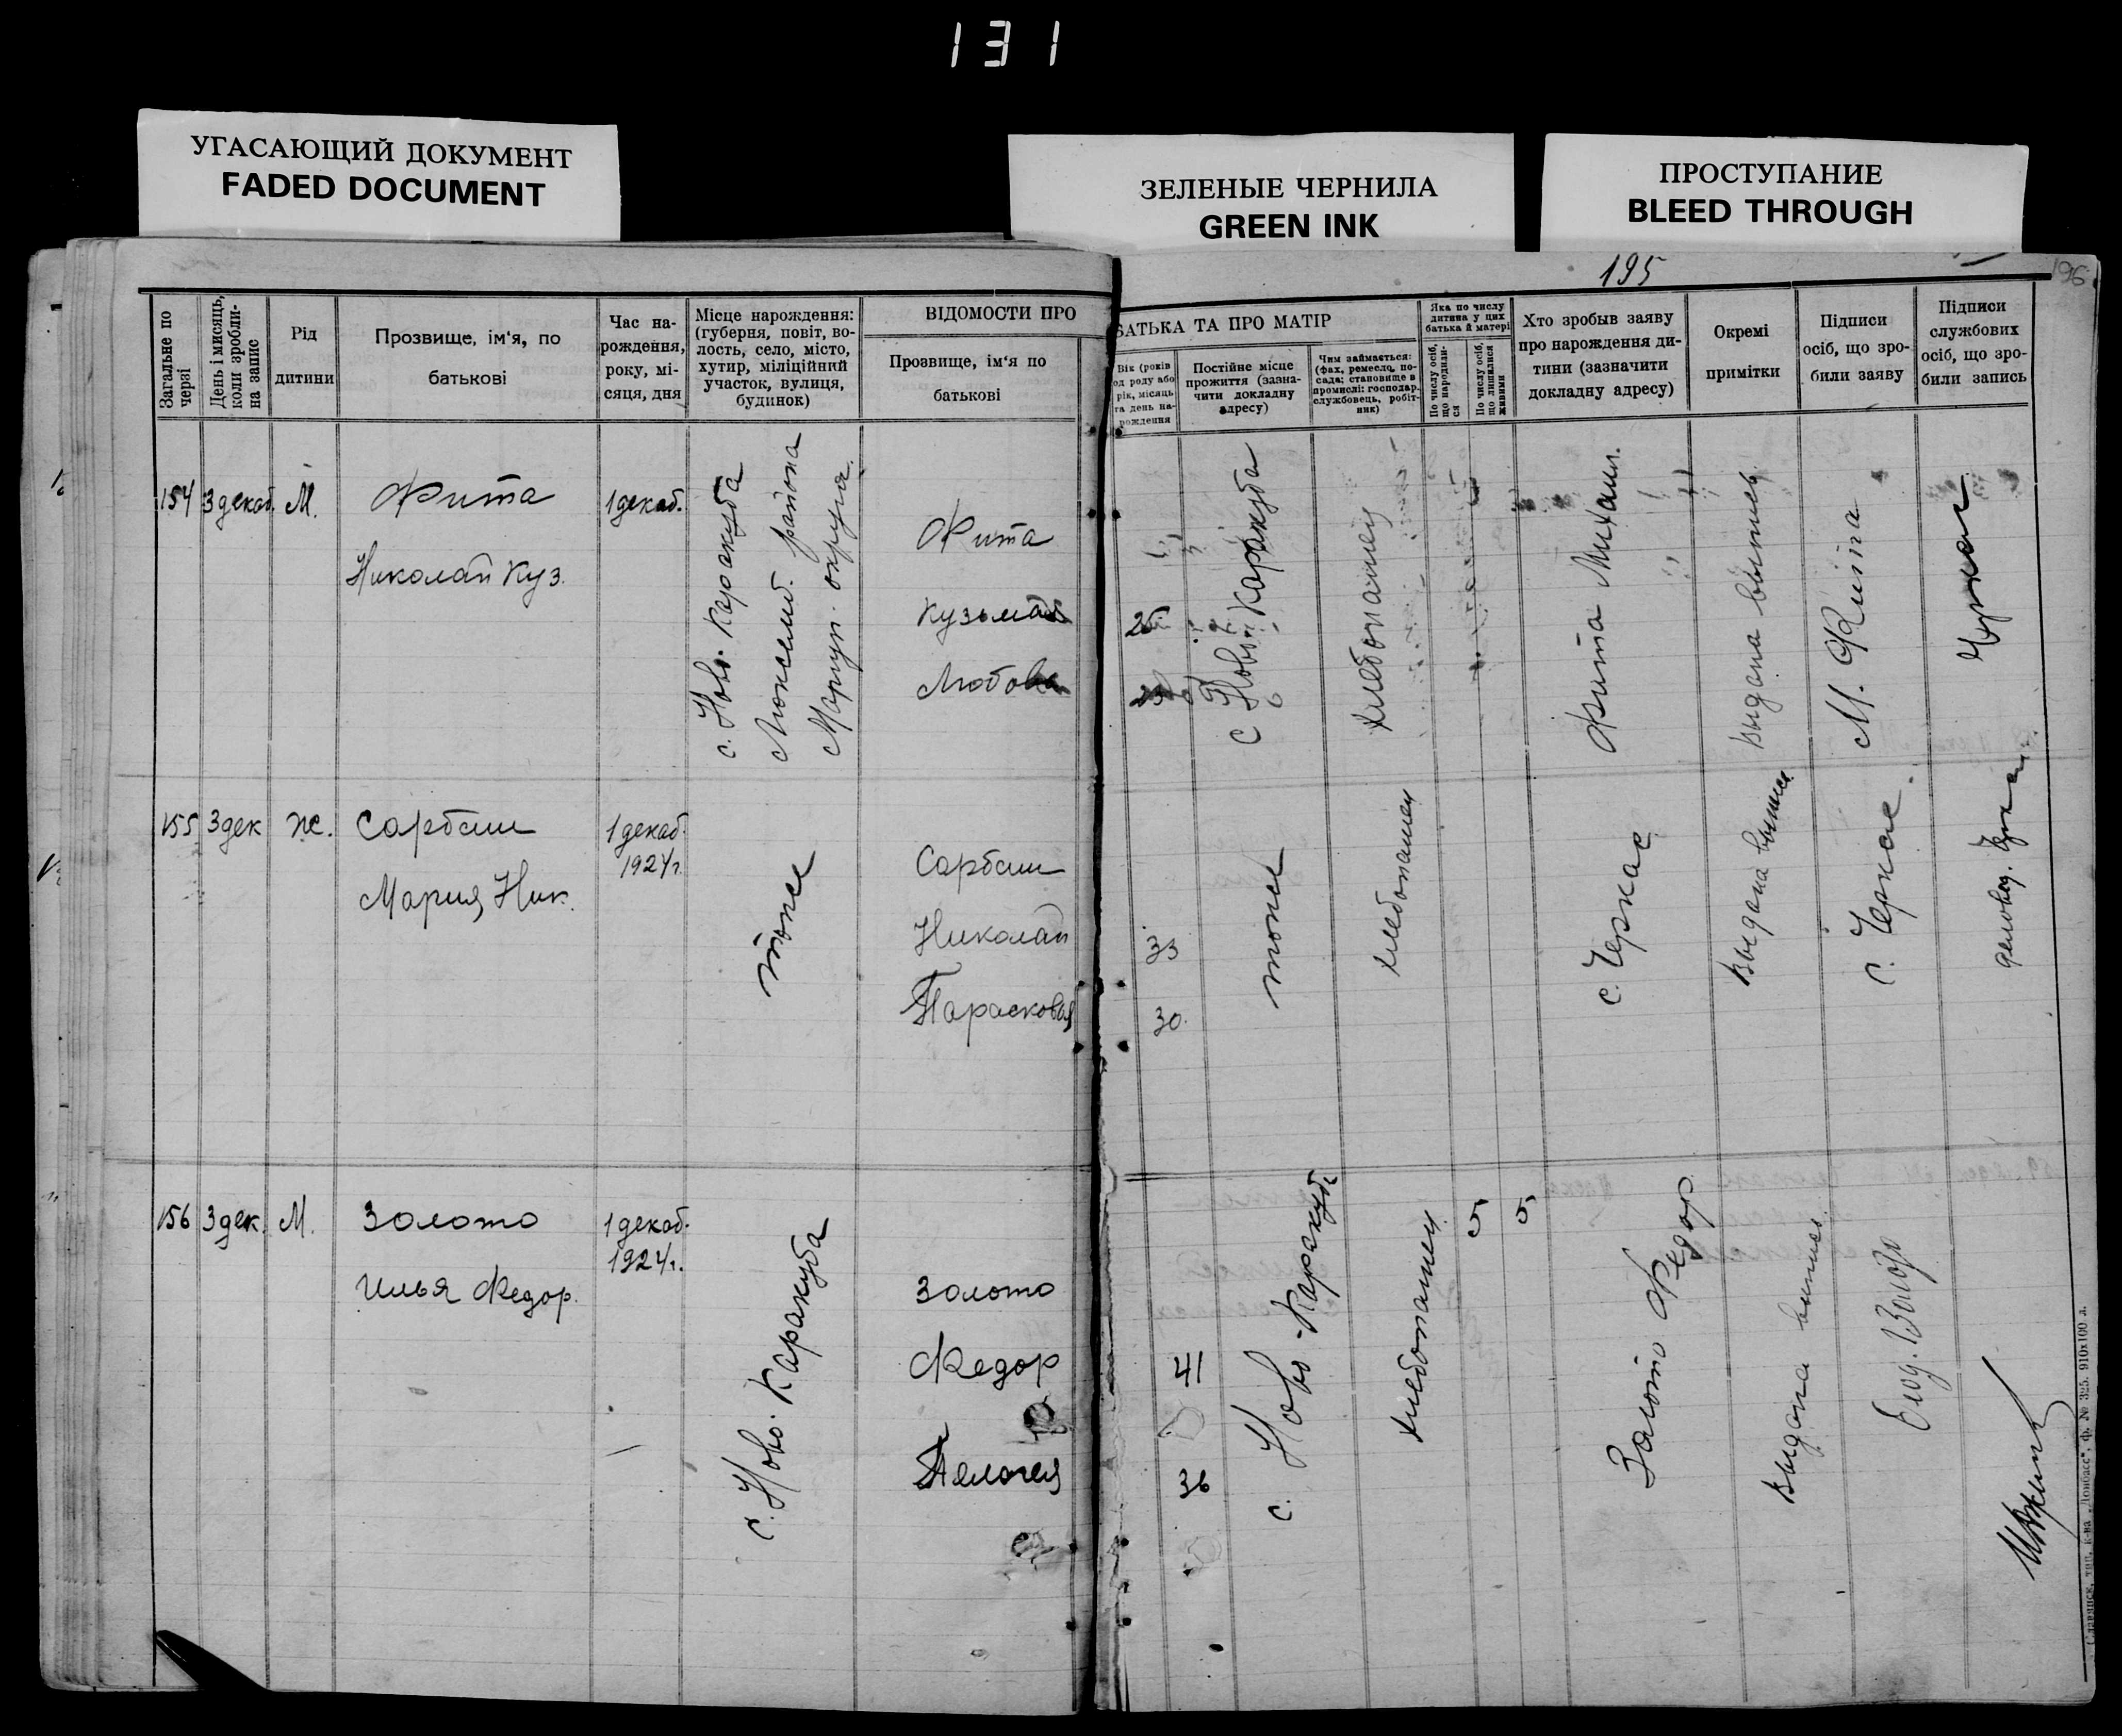 131
УГАСАЮЩИЙ ДОКУМЕНТ
FADED DOCUMENT
ЗЕЛЕНЫЕ ЧЕРНИЛА
GREEN INK
ПРОСТУПАНИЕ
BLEED THROUGH
195
196
Загальне по
черзі
День і мисяць,
коли зробли-
на запис
Рід
дитини
Прозвище, ім'я, по
батькові
Час на-
рождення,
року, мі-
сяця, дня
Місце нарождення:
(губерня, повіт, во-
лость, село, місто,
хутир, міліційний
участок, вулиця,
будинок)
ВІДОМОСТИ ПРО
Прозвище, ім'я по
батькові
БАТЬКА ТА ПРО МАТІР
Вік (років
од роду або
рік, місяць
та день на-
рождення
Постійне місце
прожиття (зазна-
чити докладну
адресу)
Чим займається:
(фах, ремесло, по-
сада; становище в
промислі: господар,
службовець, робіт-
ник)
Яка по числу
дитина у цих
батька й матері
По числу осіб,
що народили-
ся
По числу осіб,
що лишилися
живими
Хто зробыв заяву
про нарождення ди-
тини (зазначити
докладну адресу)
Окремі
примітки
Підписи
осіб, що зро-
били заяву
Підписи
службових
осіб, що зро-
били запись
154
3 декаб.
М.
Фита
Николай Куз.
1 декаб.
с. Ново. Каракуба
Люксемб. района
Мариуп. округа.
Фита
Кузьма
Любовь
25
с Ново Каракуба
хлебопашец
Фита Михаил.
Выдана выпись
М. Фита
Черкас
155
3 дек
ж.
Сарбаш
Мария Ник.
1 декаб.
1924 г.
тоже
Сарбаш
Николай
Парасковья
33
30.
тоже
хлебопашец
с. Черкас
Выдана выпись
с. Черкас.
156
3 дек.
М.
Золото
Илья Федор.
1 декаб.
1924 г.
с. Ново. Каракуба
Золото
Федор
Пелагея
41
36
с. Ново-Каракуба
хлебопашец
5
5
Золото Федор
Выдана выпись
Славянск, тип. к-ва „Донбасс", ф. № 325. 910х100 а.